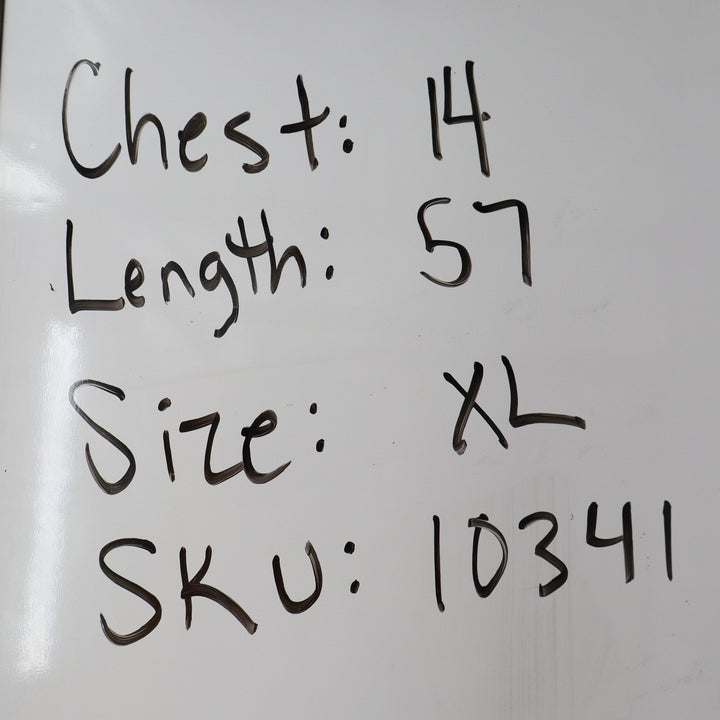 Chest: 14
Length: 57
Size: XL
SKU: 10341